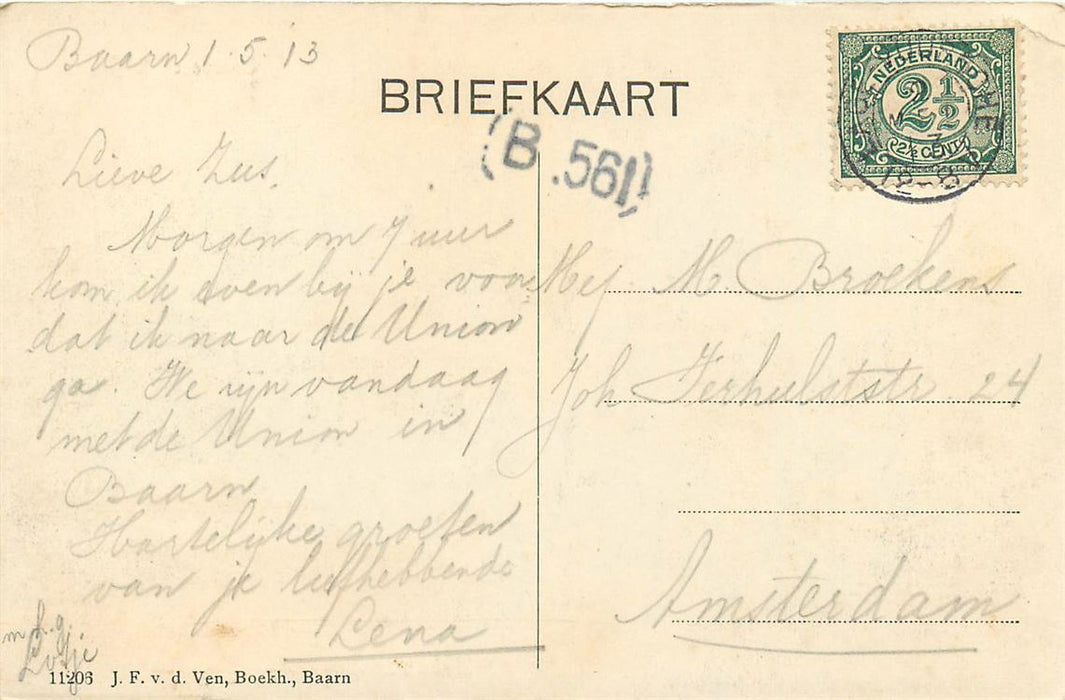 Baarn 1.5.13
BRIEFKAART
NEDERLAND
2½
2½ CENT
(B.561)
Lieve Zus,
Morgen om 7 uur
kom ik even bij je voor
dat ik naar de Union
ga. We zijn vandaag
met de Union in
Baarn
Hartelijke groeten
van je liefhebbende
Lena
m h. g.
Lotje
Mej. M Broekens
Joh Verhulststr. 24
Amsterdam
11206 J. F. v. d. Ven, Boekh., Baarn